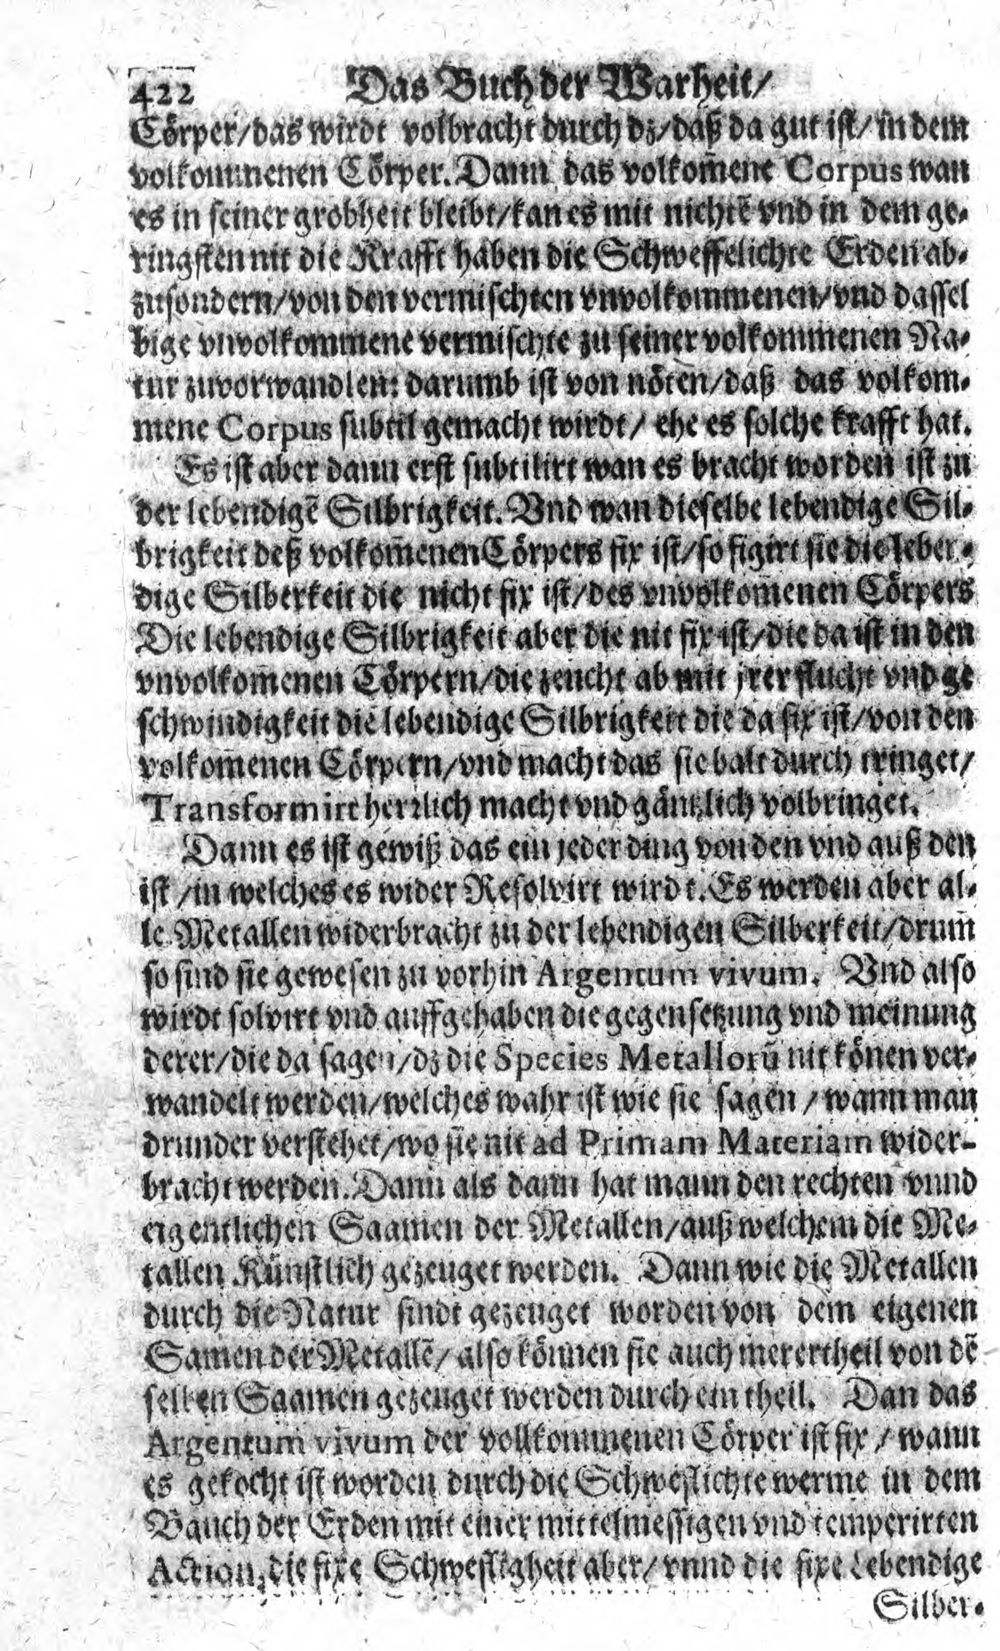 422 Das Buch der Warheit/
Cörper/das wirdt volbracht durch dz/daß da gut ist/in dem
volkommenen Cörper. Dann das volkom̃ene Corpus wan
es in seiner grobheit bleibt/kan es mit nichtẽ vnd in dem ge-
ringsten nit die Krafft haben die Schweffelichte Erden ab-
zusondern/von den vermischten vnvolkommenen/vnd dassel
bige vnvolkommene vermischte zu seiner volkommenen Na-
tur zuvorwandlen: darumb ist von nöten/daß das volkom-
mene Corpus subtil gemacht wirdt/ ehe es solche krafft hat.
Es ist aber dann erst subtilirt wan es bracht worden ist zu
der lebendigẽ Silbrigkeit. Vnd wan dieselbe lebendige Sil-
brigkeit deß volkom̃enen Cörpers fix ist/so figirt sie die leben-
dige Silberkeit die nicht fix ist/des vnvolkom̃enen Cörpers
Die lebendige Silbrigkeit aber die nit fix ist/die da ist in den
vnvolkom̃enen Cörpern/die zeucht ab mit jrer flucht vnd ge
schwindigkeit die lebendige Silbrigkeit die da fix ist/von den
volkom̃enen Cörpern/vnd macht das sie balt durch tringet/
Transformirt herrlich macht vnd gäntzlich volbringet.
Dann es ist gewiß das ein jeder ding von den vnd auß den
ist /in welches es wider Resolvirt wirdt. Es werden aber al-
le Metallen widerbracht zu der lebendigen Silberkeit/drum̃
so sind sie gewesen zu vorhin Argentum vivum. Vnd also
wirdt solvirt vnd auffgehaben die gegensetzung vnd meinung
derer/die da sagen/dz die Species Metallorũ nit könen ver-
wandelt werden/welches wahr ist wie sie sagen /wann man
drunder verstehet/wo sie nit ad Primam Materiam wider-
bracht werden. Dann als dann hat mann den rechten vnnd
eigentlichen Saamen der Metallen/auß welchem die Me-
tallen Künstlich gezeuget werden. Dann wie die Metallen
durch die Natur sindt gezeuget worden von dem eigenen
Samen der Metallẽ/ also können sie auch merertheil von dẽ
selben Saamen gezeuget werden durch ein theil. Dan das
Argentum vivum der vollkommenen Cörper ist fix / wann
es gekocht ist worden durch die Schweflichte werme in dem
Bauch der Erden mit einer mittelmessigen vnd temperirten
Action, die fixe Schwefligheit aber/ vnnd die fixe lebendige
Silber-